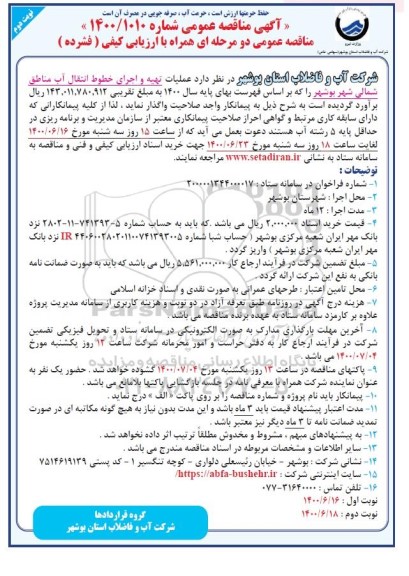 حفظ حریمها ارزش است ، حرمت آب ، صرفه جویی در مصرف آن است
نوبت دوم
« آگهی مناقصه عمومی شماره ۱۴۰۰/۱۰۱۰ »
مناقصه عمومی دو مرحله ای همراه با ارزیابی کیفی ( فشرده )
شرکت آب و فاضلاب استان بوشهر (سهامی خاص)
شرکت آب و فاضلاب استان بوشهر در نظر دارد عملیات تهیه و اجرای خطوط انتقال آب مناطق
شمالی شهر بوشهر را که بر اساس فهرست بهای پایه سال ۱۴۰۰ به مبلغ تقریبی ۱۴۳,۰۱۱,۷۸۰,۹۱۲ ریال
برآورد گردیده است به شرح ذیل به پیمانکار واجد صلاحیت واگذار نماید ، لذا از کلیه پیمانکارانی که
دارای سابقه کاری مرتبط و گواهی احراز صلاحیت پیمانکاری معتبر از سازمان مدیریت و برنامه ریزی در
حداقل پایه ۵ رشته آب هستند دعوت بعمل می آید که از ساعت ۱۵ روز سه شنبه مورخ ۱۴۰۰/۰۶/۱۶
لغایت ساعت ۱۸ روز سه شنبه مورخ ۱۴۰۰/۰۶/۲۳ جهت خرید اسناد ارزیابی کیفی و فنی و مناقصه به
سامانه ستاد به نشانی www.setadiran.ir مراجعه نمایند.
توضیحات :
۱- شماره فراخوان در سامانه ستاد : ۲۰۰۰۰۰۱۳۴۴۰۰۰۰۱۷
۲- محل اجرا : شهرستان بوشهر
۳- مدت اجرا : ۱۲ ماه
۴- قیمت خرید اسناد ۲,۰۰۰,۰۰۰ ریال می باشد .که باید به حساب شماره ۵-۷۴۱۳۹۳-۱۱-۲۸۰۲ نزد
بانک مهر ایران شعبه مرکزی بوشهر ( حساب شبا شماره IR نزد بانک
مهر ایران شعبه مرکزی بوشهر ) واریز گردد .
۵- مبلغ تضمین شرکت در فرآیند ارجاع کار ۵,۵۶۱,۰۰۰,۰۰۰ ریال می باشد که باید به صورت ضمانت نامه
بانکی به نفع این شرکت ارائه گردد .
۶- محل تامین اعتبار : طرحهای عمرانی به صورت نقدی و اسناد خزانه اسلامی
۷- هزینه درج آگهی در روزنامه طبق تعرفه آزاد در دو نوبت و هزینه کاربری از سامانه مدیریت پروژه
علاوه بر کارمزد سامانه ستاد به عهده برنده مناقصه می باشد .
۸- آخرین مهلت بارگذاری مدارک به صورت الکترونیکی در سامانه ستاد و تحویل فیزیکی تضمین
شرکت در فرآیند ارجاع کار به دفتر حراست و امور محرمانه شرکت ساعت ۱۲ روز یکشنبه مورخ
۱۴۰۰/۰۷/۰۴ می باشد.
۹- پاکتهای مناقصه در ساعت ۱۳ روز یکشنبه مورخ ۱۴۰۰/۰۷/۰۴ گشوده خواهد شد . حضور یک نفر به
عنوان نماینده شرکت همراه با معرفی نامه در جلسه بازگشایی پاکتها بلامانع می باشد .
۱۰- پیمانکار باید نام پروژه و شماره مناقصه را بر روی پاکت « الف » درج نماید .
۱۱- مدت اعتبار پیشنهاد قیمت باید ۳ ماه باشد و این مدت بدون نیاز به هیچ گونه مکاتبه ای در صورت
تمدید ضمانت نامه تا ۳ ماه دیگر نیز معتبر باشد .
۱۲- به پیشنهادهای مبهم ، مشروط و مخدوش مطلقاً ترتیب اثر داده نخواهد شد .
۱۳- سایر اطلاعات و مشخصات مربوطه در اسناد مناقصه مندرج می باشد .
۱۴- نشانی شرکت : بوشهر - خیابان رئیسعلی دلواری - کوچه تنگسیر ۱ - کد پستی ۷۵۱۴۶۱۹۱۳۹
۱۵- سایت اینترنتی شرکت : https://abfa-bushehr.ir/
۱۶- تلفن تماس : ۳۱۶۴۰۰۰۰-۰۷۷
نوبت اول : ۱۴۰۰/۶/۱۶
نوبت دوم : ۱۴۰۰/۶/۱۸
گروه قراردادها
شرکت آب و فاضلاب استان بوشهر